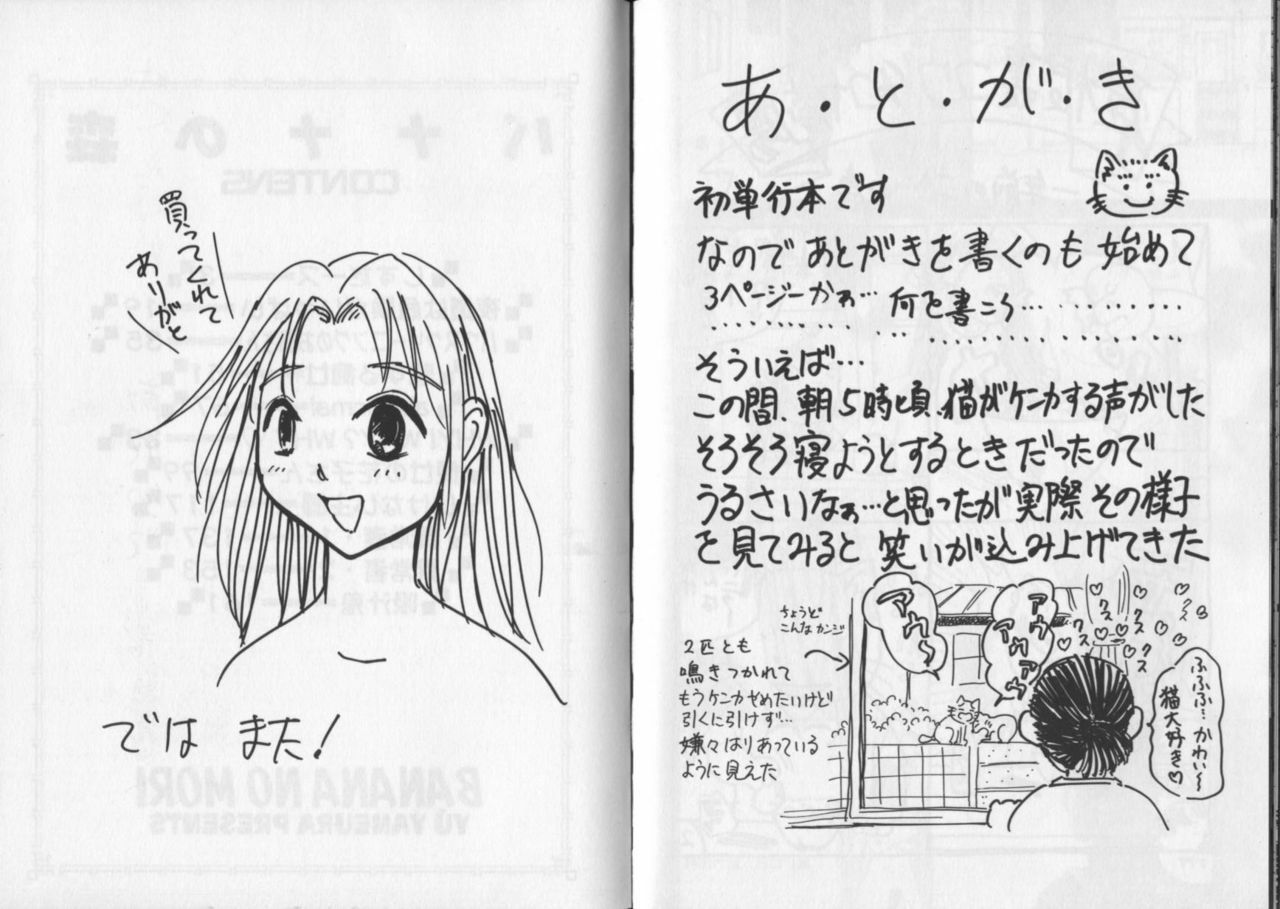 あ・と・が・き
初単行本です
なのであとがきを書くのも始めて
3ページーかぁ… 何を書こう…
そういえば…
この間、朝5時頃、猫がケンカする声がした
そろそろ寝ようとするときだったので
うるさいなぁ…と思ったが実際その様子
を見てみると笑いが込み上げてきた
ちょうど
こんなカンジ
2匹とも
鳴きつかれて
もうケンカやめたいけど
引くに引けず…
嫌々はりあっている
ように見えた
アウ〜
アウ
アウアウ
クスクス
クス
クス
クス
ふふふ…かわい〜
猫大好き♡
買ってくれて
ありがと
ではまた!
バナナの森
CONTENS
BANANA NO MORI
YŪ YANEURA PRESENTS